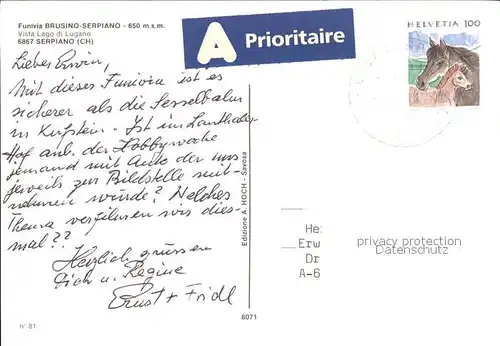 Funivia BRUSINO-SERPIANO - 650 m.s.m.
Vista Lago di Lugano
6867 SERPIANO (CH)
A Prioritaire
HELVETIA 100
Lieber Erwin,
Mit dieser Funivia ist es
sicherer als die Sesselbahn
in Kufstein. Ist im Lanthaler
Hof anl. der Hobbywoche
jemand mit Auto der uns
jeweils zur Bildstelle mit-
nehmen würde? Welches
Thema verfilmen wir dies-
mal??
Herzlich grüssen
Dich u. Regine
Ernst + Fridl
Edizione A. HOCH - Savosa
He
Erw
Dr
A-6
privacy protection
Datenschutz
n° 81
8071